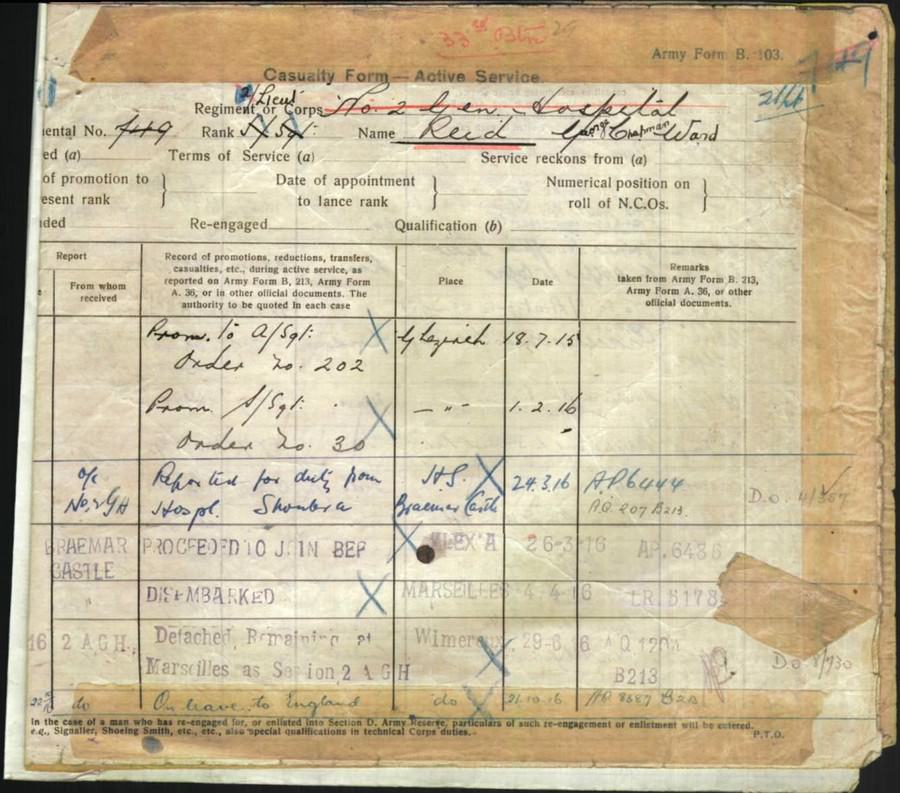 33rd Btn
Army Form B. 103.
Casualty Form—Active Service.
2/Lieut
Regiment or Corps No. 2 Gen. Hospital
ental No. 749 Rank S/Sgt Name Reid George Chapman Ward
ed (a) Terms of Service (a) Service reckons from (a)
of promotion to Date of appointment Numerical position on
esent rank to lance rank roll of N.C.Os.
ded Re-engaged Qualification (b)
Report
From whom received
Record of promotions, reductions, transfers,
casualties, etc., during active service, as
reported on Army Form B, 213, Army Form
A. 36, or in other official documents. The
authority to be quoted in each case
Place
Date
Remarks
taken from Army Form B. 213,
Army Form A. 36, or other
official documents.
Prom. to A/Sgt. Ghezireh 18.7.15
Order No. 202
Prom. S/Sgt. — " — 1.2.16
Order No. 30
o/c Reported for duty from H.S. 24.3.16 A.P.6444
No. 2 GH Hospl. Shoubra Braemar Castle A.Q. 207 B213.
BRAEMAR CASTLE PROCEEDED TO JOIN BEF ALEX'A 26-3-16 AP.6486
" DISEMBARKED MARSEILLES 4 4 16 LR.5178
16 2 A G H. Detached, Remaining at Wimereux, 29-6 16 A Q 120
Marseilles as Section 2 A G H B213
D.o. 8/930
do On leave to England do 21.10.16 B213
In the case of a man who has re-engaged for, or enlisted into Section D. Army Reserve, particulars of such re-engagement or enlistment will be entered.
e.g., Signaller, Shoeing Smith, etc., etc., also special qualifications in technical Corps duties.
P.T.O.